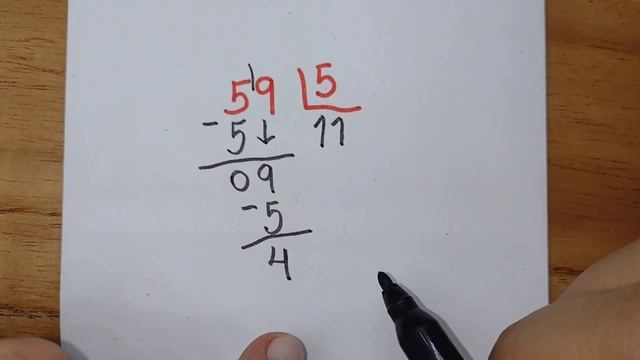 59 5
- 5 ↓ 11
09
- 5
4